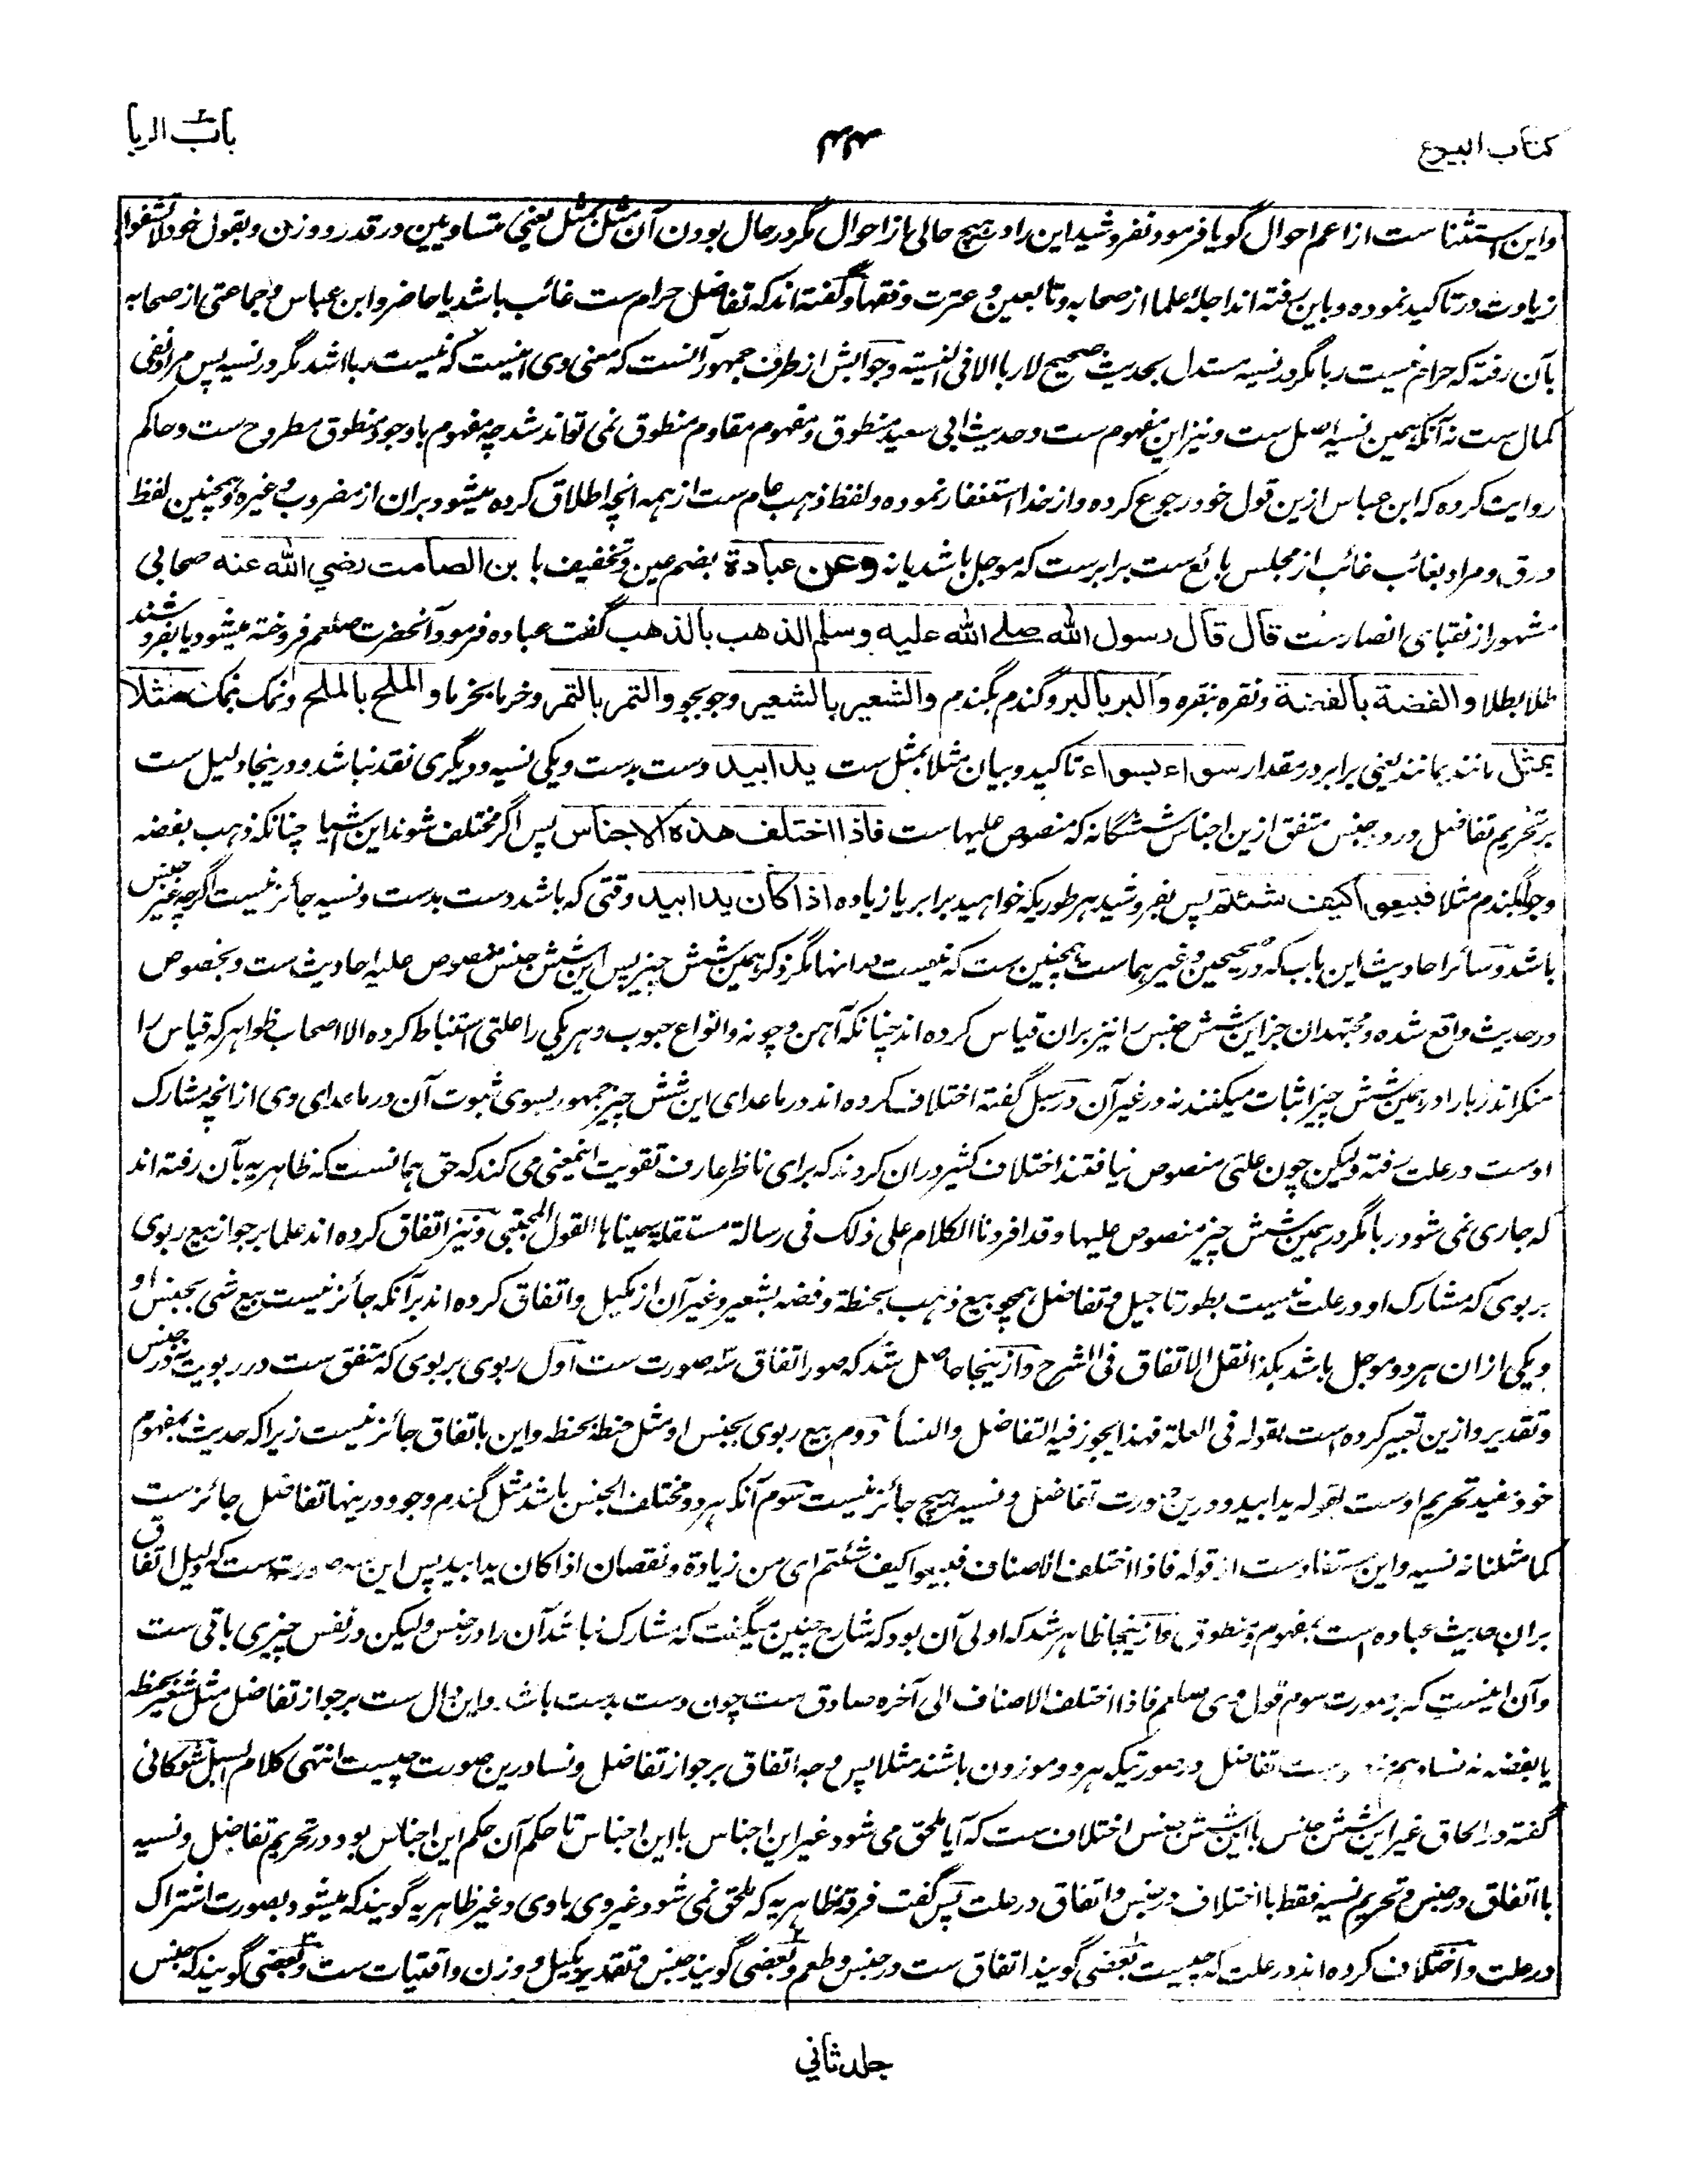 کتاب البیوع
باب الربا
واین استثنا ست از اعم احوال گویا فرمود نفروشید این را در هیچ حالی از احوال مگر در حال بودن آن مثل بمثل یعنی متساویین در قدر و وزن و بقول خود لا تشفوا
زیادت در تاکید نموده و باین رفته اند اجلهٔ علما از صحابه و تابعین و عترت و فقها و گفته اند که تفاضل حرام ست غائب باشد یا حاضر و ابن عباس و جماعتی از صحابه
بآن رفته که حرام نیست ربا مگر در نسیه مستدل بحدیث صحیح لا ربا الا فی النسیه و جوابش از طرف جمهور آنست که معنی وی اینست که نیست ربا اشد مگر در نسیه پس مراد نفی
کمال ست نه آنکه همین نسیه اصل ست و نیز این مفهوم ست و حدیث ابی سعید منطوق و مفهوم مقاوم منطوق نمی تواند شد چه مفهوم با وجود منطوق مطروح ست و حاکم
روایت کرده که ابن عباس ازین قول خود رجوع کرده و از خدا استغفار نموده و لفظ ذهب عام ست از همه انچه اطلاق کرده میشود بران از مضروب و غیره و همچنین لفظ
ورق و مراد بغائب غائب از مجلس بائع ست برابرست که موجل باشد یا نه وعن عبادة بضم عین و تخفیف با بن الصامت رضي الله عنه صحابی
مشهور از نقبای انصارست قال قال رسول الله صلے الله علیه وسلم الذهب بالذهب گفت عباده فرمود آنحضرت صلعم فروخته میشود یا بفروشند
طلا بطلا والفضة بالفضة و نقره بنقره والبر بالبر و گندم بگندم والشعیر بالشعیر و جو بجو والتمر بالتمر و خرما بخرما والملح بالملح و نمک بنمک مثلا
بمثل مانند بمانند یعنی برابر در مقدار سواء بسواء تاکید و بیان مثلا بمثل ست یدا بید دست بدست و یکی نسیه و دیگری نقد نباشد و درینجا دلیل ست
بر تحریم تفاضل در دو جنس متفق ازین اجناس ششگانه که منصوص علیهاست فاذا اختلف هذه الاجناس پس اگر مختلف شوند این اشیا چنانکه ذهب بفضه
و جو بگندم مثلا فبیعوا کیف شئتم پس بفروشید هر طوریکه خواهید برابر یا زیاده اذا کان یدا بید وقتی که باشد دست بدست و نسیه جائز نیست اگرچه غیر جنس
باشد و سائر احادیث این باب که در صحیحین و غیرهماست همچنین ست که نیست در انها مگر ذکر همین شش چیز پس این شش جنس منصوص علیه احادیث ست و بخصوص
در حدیث واقع شده و مجتهدان جز این شش جنس را نیز بران قیاس کرده اند چنانکه آهن و چونه و انواع حبوب و هر یکی را علتی استنباط کرده الا اصحاب ظواهر که قیاس را
منکر اند ربا را در همین شش چیز اثبات میکنند نه در غیر آن در سبل گفته اختلاف کرده اند در ماعدای این شش چیز جمهور بسوی ثبوت آن در ماعدای وی از انچه مشارک
اوست در علت رفته و لیکن چون علتی منصوص نیافتند اختلاف کثیر در ان کردند که برای ناظر عارف تقویت اینمعنی می کند که حق همانست که ظاهریه بآن رفته اند
که جاری نمی شود ربا مگر در همین شش چیز منصوص علیها و قد افردنا الکلام علی ذلک فی رسالة مستقلة سمیناها القول المجتبی و نیز اتفاق کرده اند علما بر جواز بیع ربوی
بربوی که مشارک او در علت نیست بطور تاجیل و تفاضل همچو بیع ذهب بحنطة و فضه بشعیر و غیر آن از مکیل و اتفاق کرده اند بر آنکه جائز نیست بیع شی بجنس او
و یکی از ان هر دو موجل باشد هکذا نقل الاتفاق فی الشرح و ازینجا حاصل شد که صور اتفاق سه صورت ست اول ربوی بربوی که متفق ست در ربویت نه در جنس
و تقدیر و ازین تعبیر کرده است بقوله فی العلة فهذا یجوز فیه التفاضل والنسأ دوم بیع ربوی بجنس او مثل حنطه بحنطه و این باتفاق جائز نیست زیرا که حدیث بمفهوم
خود مفید تحریم اوست لقوله یدا بید و درین صورت تفاضل و نسیه هیچ جائز نیست سوم آنکه هر دو مختلف الجنس باشد مثل گندم و جو و درینها تفاضل جائزست
کما مثلنا نه نسیه و این مستفادست از قوله فاذا اختلف الاصناف فبیعوا کیف شئتم ای من زیادة و نقصان اذا کان یدا بید پس این سه صورت ست که دلیل اتفاق
بران حدیث عباده است بمفهوم و منطوق و ازینجا ظاهر شد که اولی آن بود که شارح چنین میگفت که مشارک نباشد آن را در جنس و لیکن در نفس چیزی باقی ست
و آن اینست که بر صورت سوم قول وی صلعم فاذا اختلف الاصناف الی آخره صادق ست چون دست بدست باشد و این دال ست بر جواز تفاضل مثل شعیر بحنطه
یا بفضه نه نسا و ست تفاضل در صورتیکه هر دو موزون باشند مثلا پس وجه اتفاق بر جواز تفاضل و نسا درین صورت چیست انتهی کلام السبل شوکانی
گفته در الحاق غیر این شش جنس با این شش جنس اختلاف ست که آیا ملحق می شود غیر این اجناس با این اجناس تا حکم آن حکم این اجناس بود در تحریم تفاضل و نسیه
با اتفاق در جنس و تحریم نسیه فقط با اختلاف در جنس و اتفاق در علت پس گفت فرقهٔ ظاهریه که ملحق نمی شود غیر وی با وی و غیر ظاهریه گویند که میشود بصورت اشتراک
در علت و اختلاف کرده اند در علت که چیست بعضی گویند اتفاق ست در جنس و طعم و بعضی گویند جنس و تقدیر بکیل و وزن و اقتیات ست و بعضی گویند که جنس
جلد ثانی